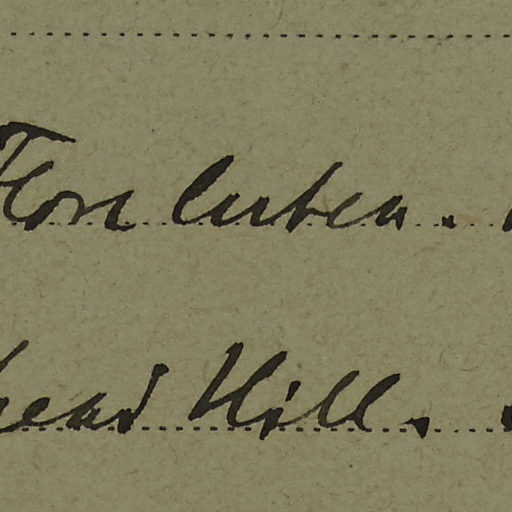 Flore luten.
head Hill.